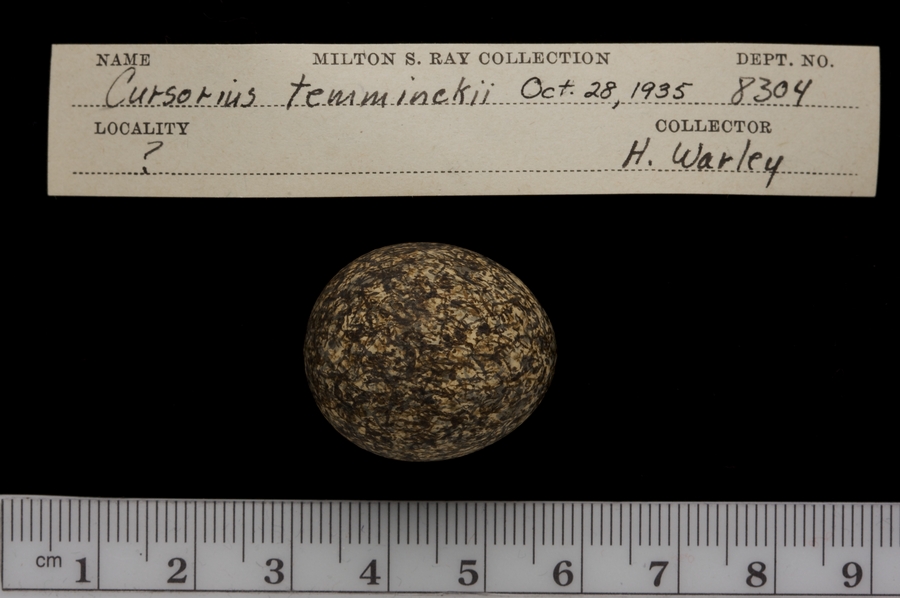 NAME MILTON S. RAY COLLECTION DEPT. NO.
Cursorius temminckii Oct. 28, 1935 8304
LOCALITY COLLECTOR
? H. Warley
cm 1 2 3 4 5 6 7 8 9